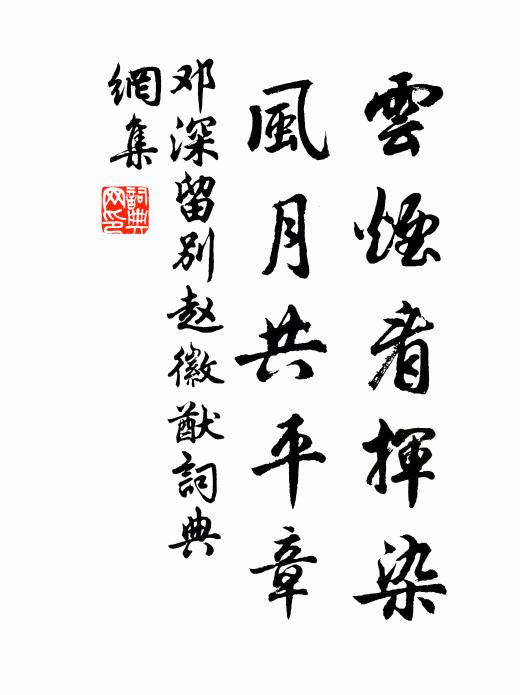 雲煙看揮染
風月共平章
邓深留別赵徽猷詞典
網集
詞典
网印